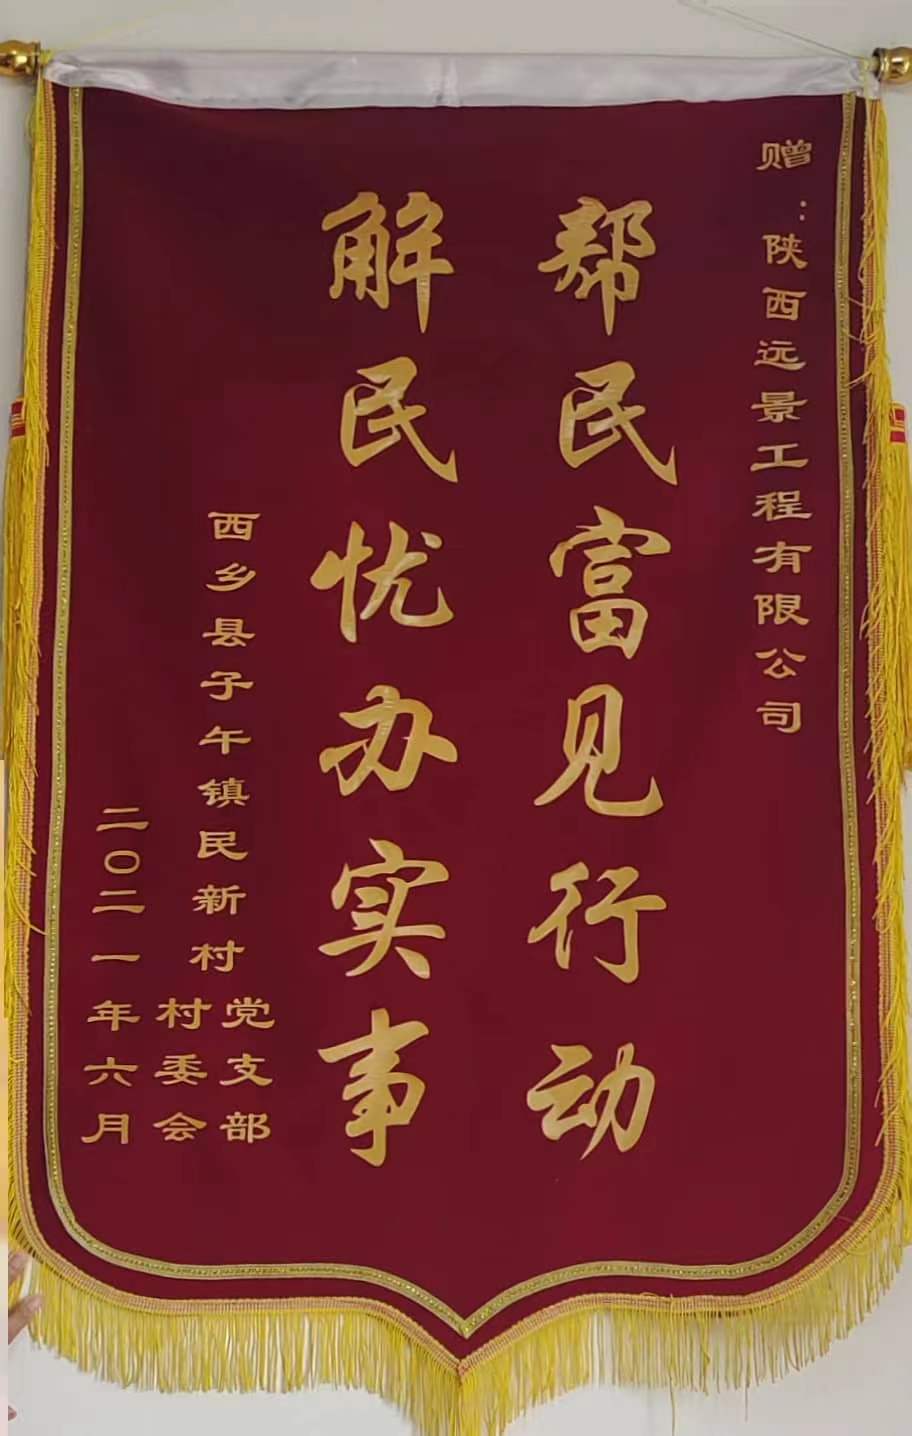 赠：陕西远景工程有限公司
帮民富见行动
解民忧办实事
西乡县子午镇民新村
党支部
村委会
二〇二一年六月